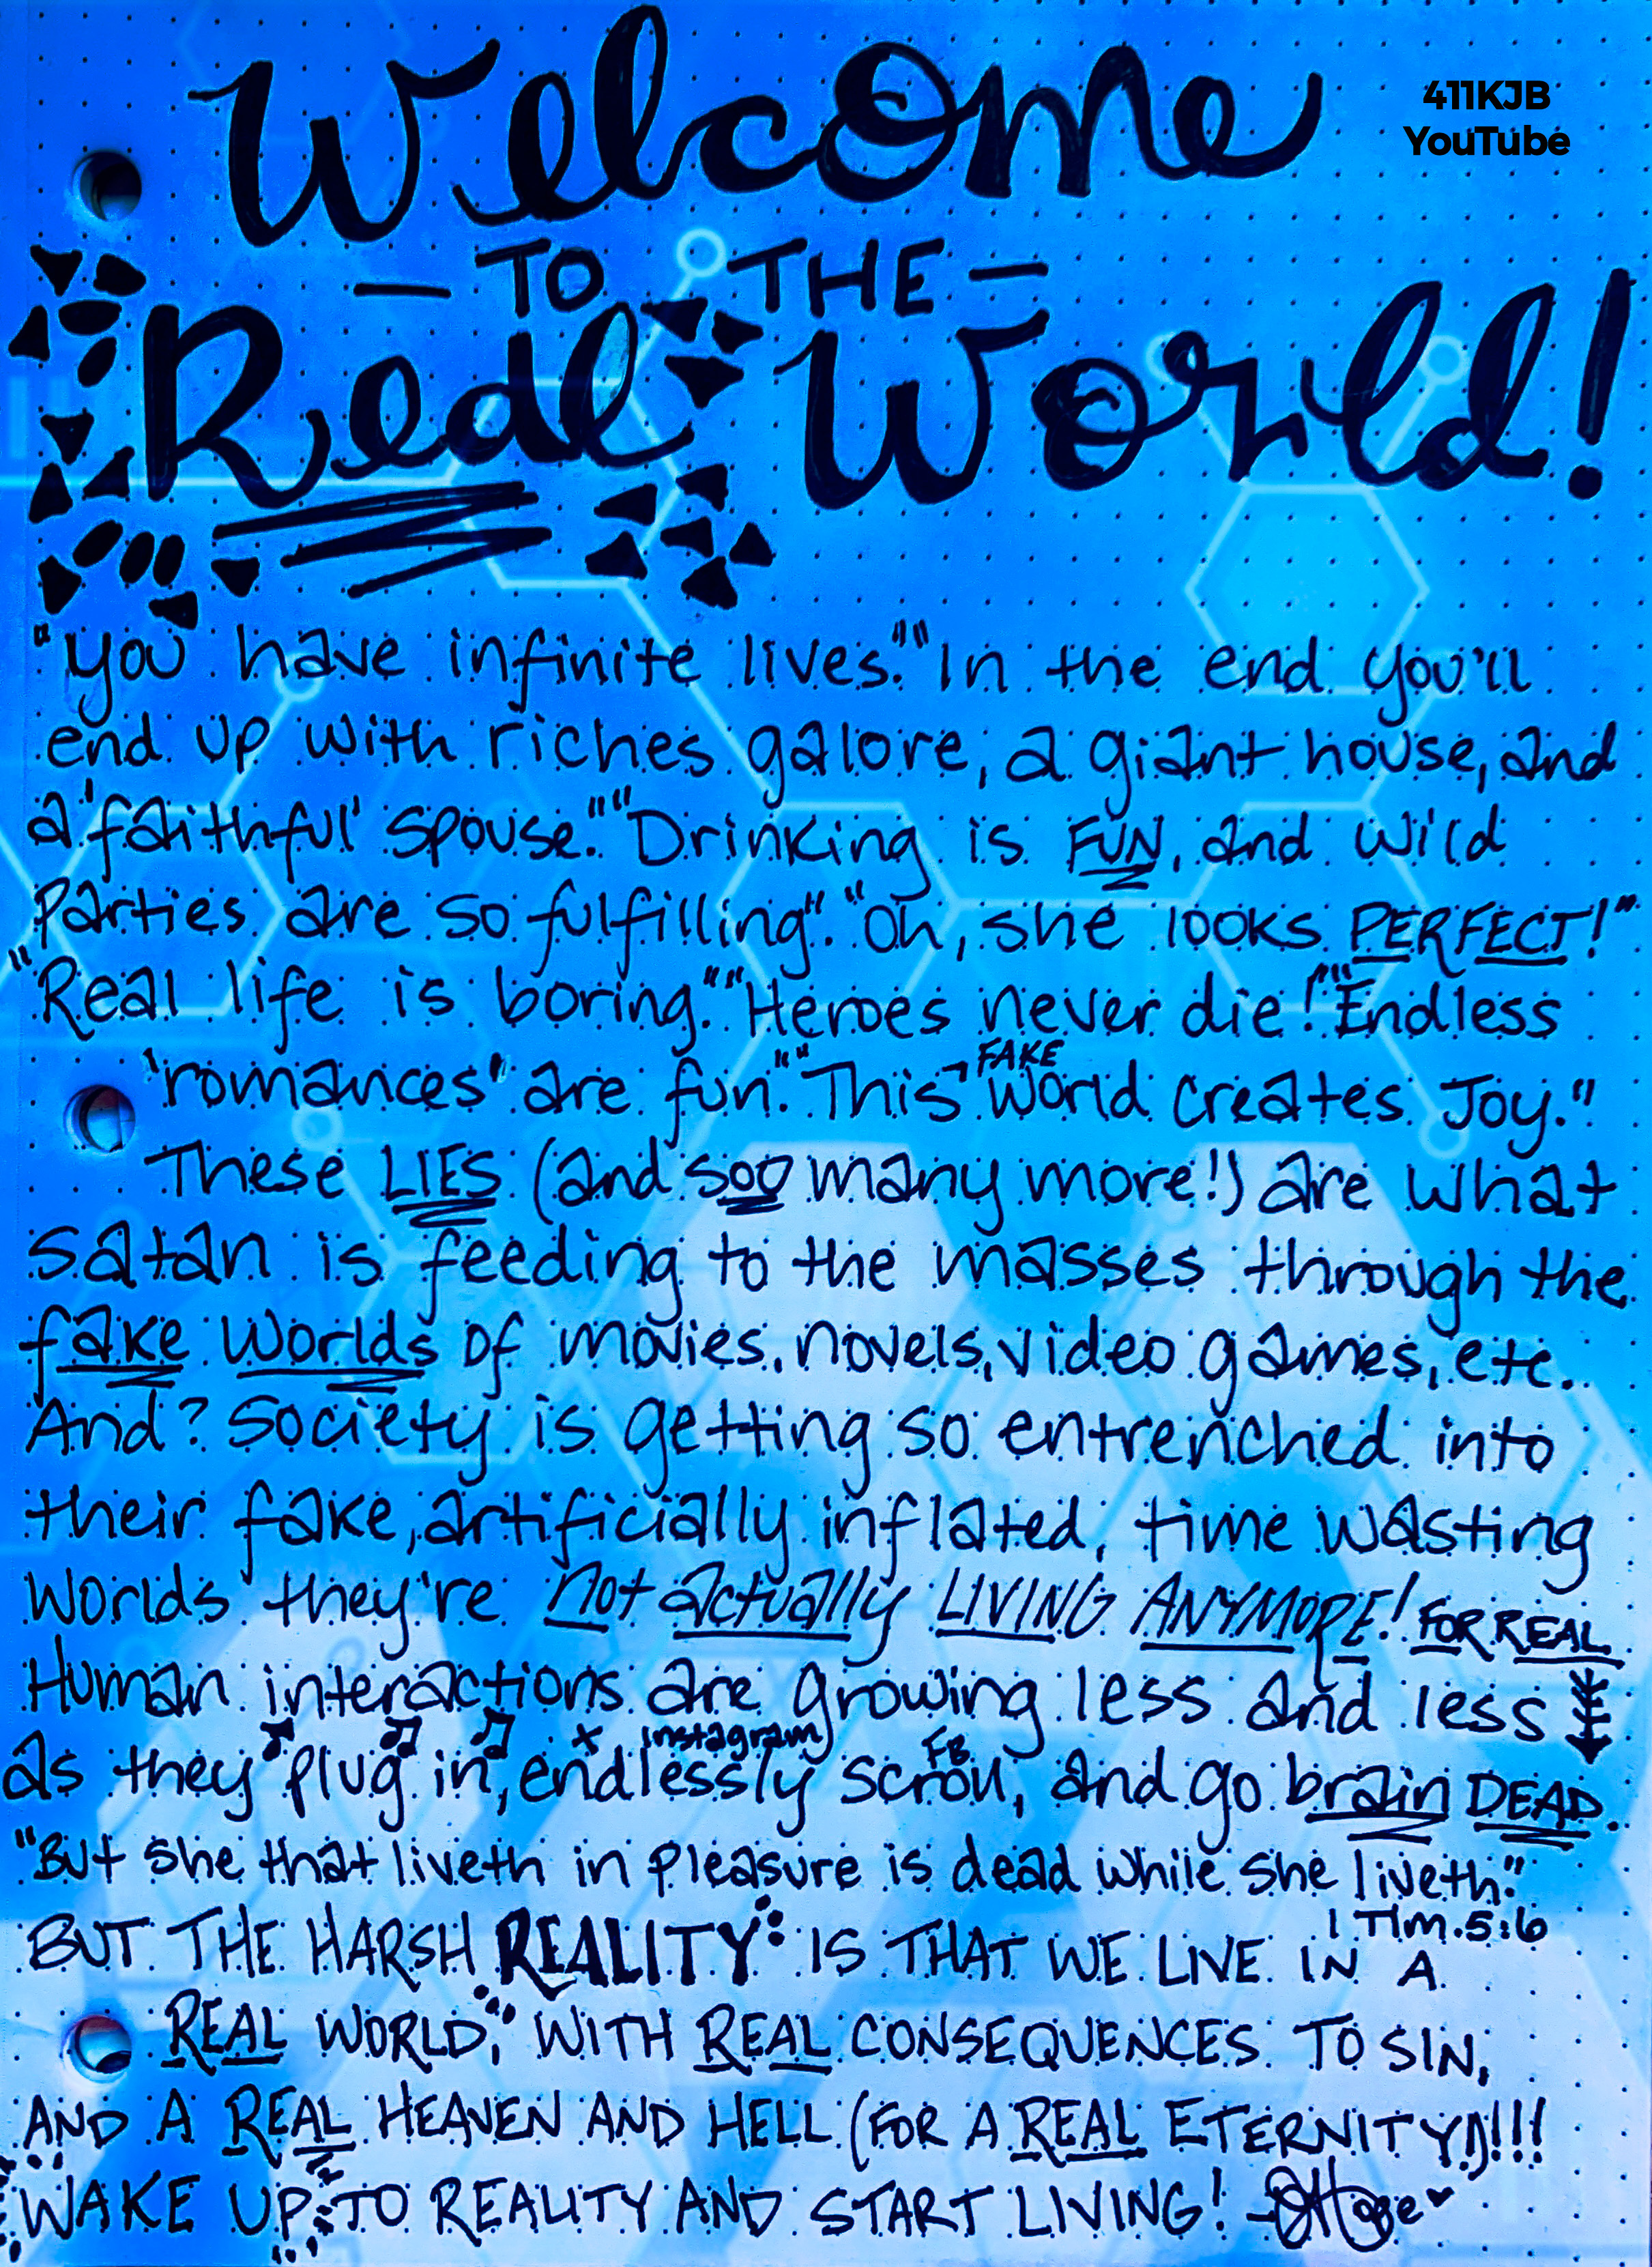 Welcome
411KJB
YouTube
— TO THE —
Real World!
"You have infinite lives." "In the end you'll
end up with riches galore, a giant house, and
a 'faithful' spouse." "Drinking is FUN, and wild
Parties are so fulfilling". "Oh, she looks PERFECT!"
"Real life is boring." "Heroes never die!" "Endless
'romances' are fun." "This FAKE World creates Joy."
These LIES (and soo many more!) are what
Satan is feeding to the masses through the
fake worlds of movies, novels, video games, etc.
And? Society is getting so entrenched into
their fake, artificially inflated, time wasting
worlds they're not actually LIVING ANYMORE! FOR REAL
Human interactions are growing less and less
X instagram FB
as they plug in, endlessly scroll, and go brain DEAD.
"But she that liveth in pleasure is dead while she liveth."
1 Tim. 5:6
BUT THE HARSH REALITY IS THAT WE LIVE IN A
REAL WORLD, WITH REAL CONSEQUENCES TO SIN,
AND A REAL HEAVEN AND HELL (FOR A REAL ETERNITY!)!!!
WAKE UP TO REALITY AND START LIVING!